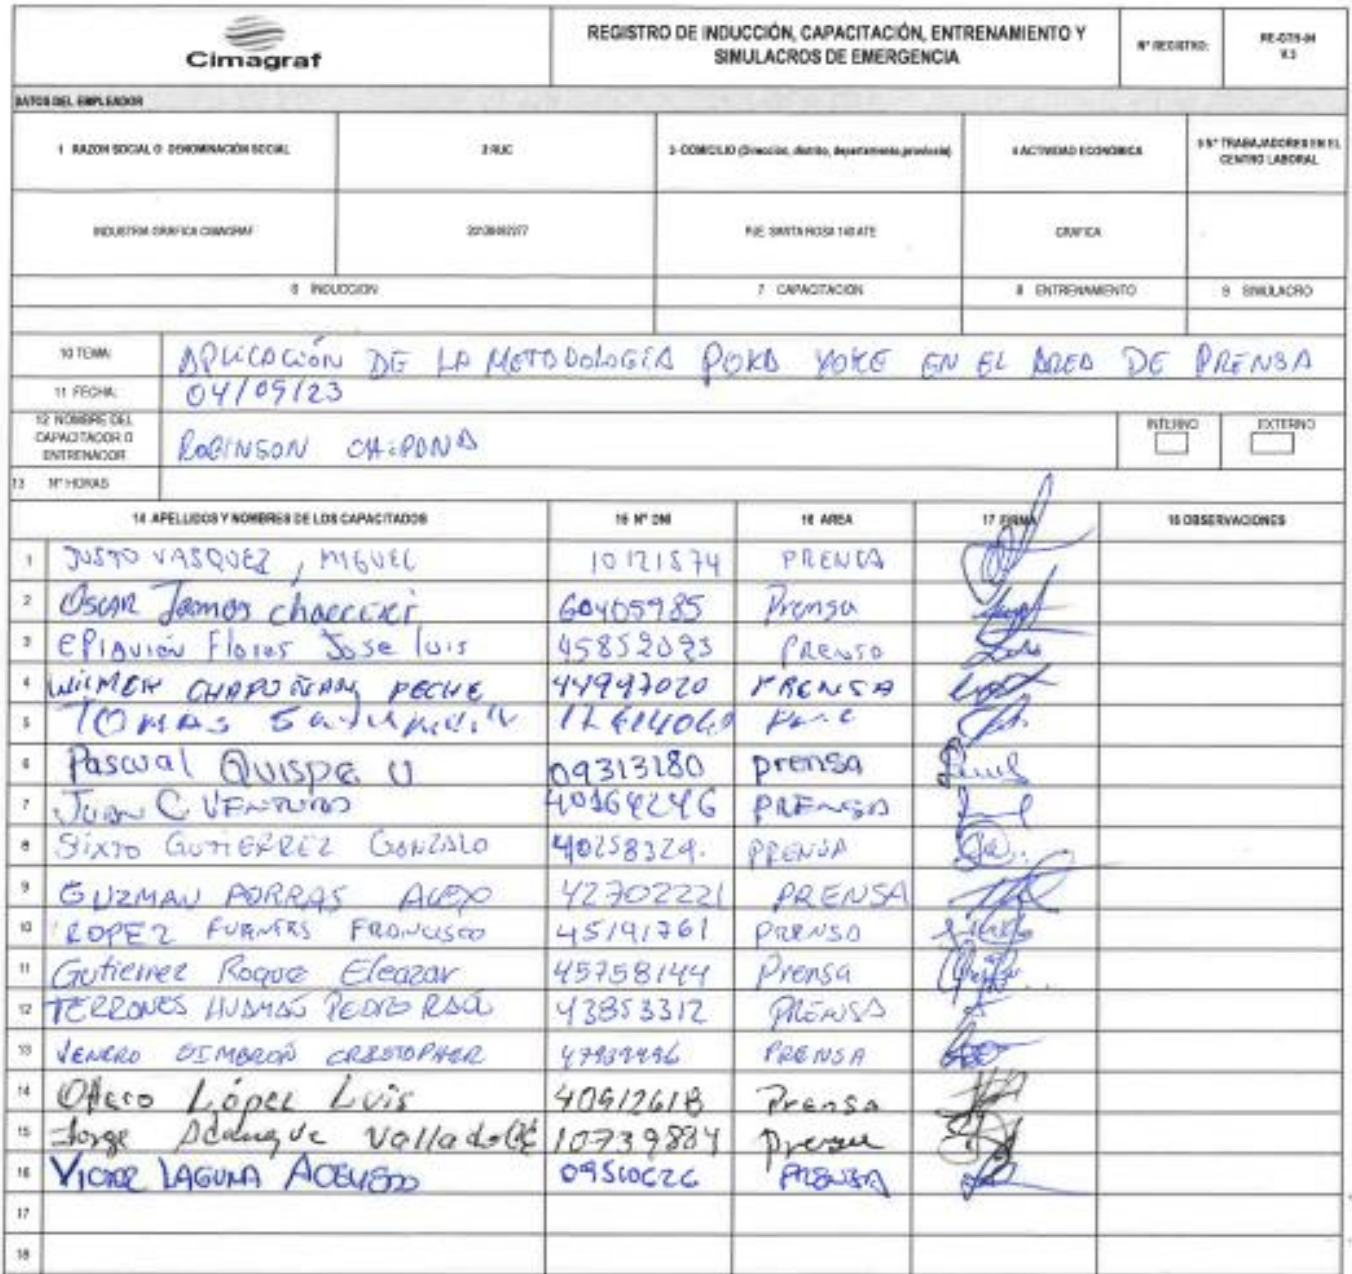 Cimagraf
REGISTRO DE INDUCCIÓN, CAPACITACIÓN, ENTRENAMIENTO Y
SIMULACROS DE EMERGENCIA
N° REGISTRO:
V.3
DATOS DEL EMPLEADOR
1 RAZON SOCIAL O DENOMINACIÓN SOCIAL
2 RUC
3- DOMICILIO (Dirección, distrito, departamento, provincia)
4 ACTIVIDAD ECONÓMICA
5 N° TRABAJADORES EN EL
CENTRO LABORAL
INDUSTRIA GRAFICA CIMAGRAF
PJE. SANTA ROSA 140 ATE
GRAFICA
6 INDUCCION
7 CAPACITACION
8 ENTRENAMIENTO
9 SIMULACRO
10 TEMA:
APLICACIÓN DE LA METODOLOGÍA POKA YOKE EN EL AREA DE PRENSA
11 FECHA:
04/09/23
12 NOMBRE DEL
CAPACITADOR O
ENTRENADOR
ROBINSON
INTERNO
EXTERNO
13 N° HORAS
14 APELLIDOS Y NOMBRES DE LOS CAPACITADOS
15 N° DNI
16 AREA
17 FIRMA
18 OBSERVACIONES
1 JUSTO VASQUEZ, MIGUEL 10121574 PRENSA
2 OSCAR 60405985 Prensa
3 Flores Jose luis PRENSA
4 WILMER CHAPOÑAN PECHE 44947020 PRENSA
5 TOMAS
6 Pascual QUISPE U 09313180 prensa
7 JUAN C. VENTURA PRENSA
8 SIXTO GUTIERREZ GONZALO 40258329. PRENSA
9 GUZMAN PORRAS ALEXO 42702221 PRENSA
10 LOPEZ FRANCISCO 45191761 PRENSA
11 Gutierrez Roque Eleazar 45758144 Prensa
12 TERRONES HUAMAN PEDRO RAÚL 43853312 PRENSA
13 VENERO PRENSA
14 López Luis 40912618 Prensa
15 Jorge 10739884 Prensa
16 VICTOR LAGUNA ACEVEDO 09510626 PRENSA
17
18